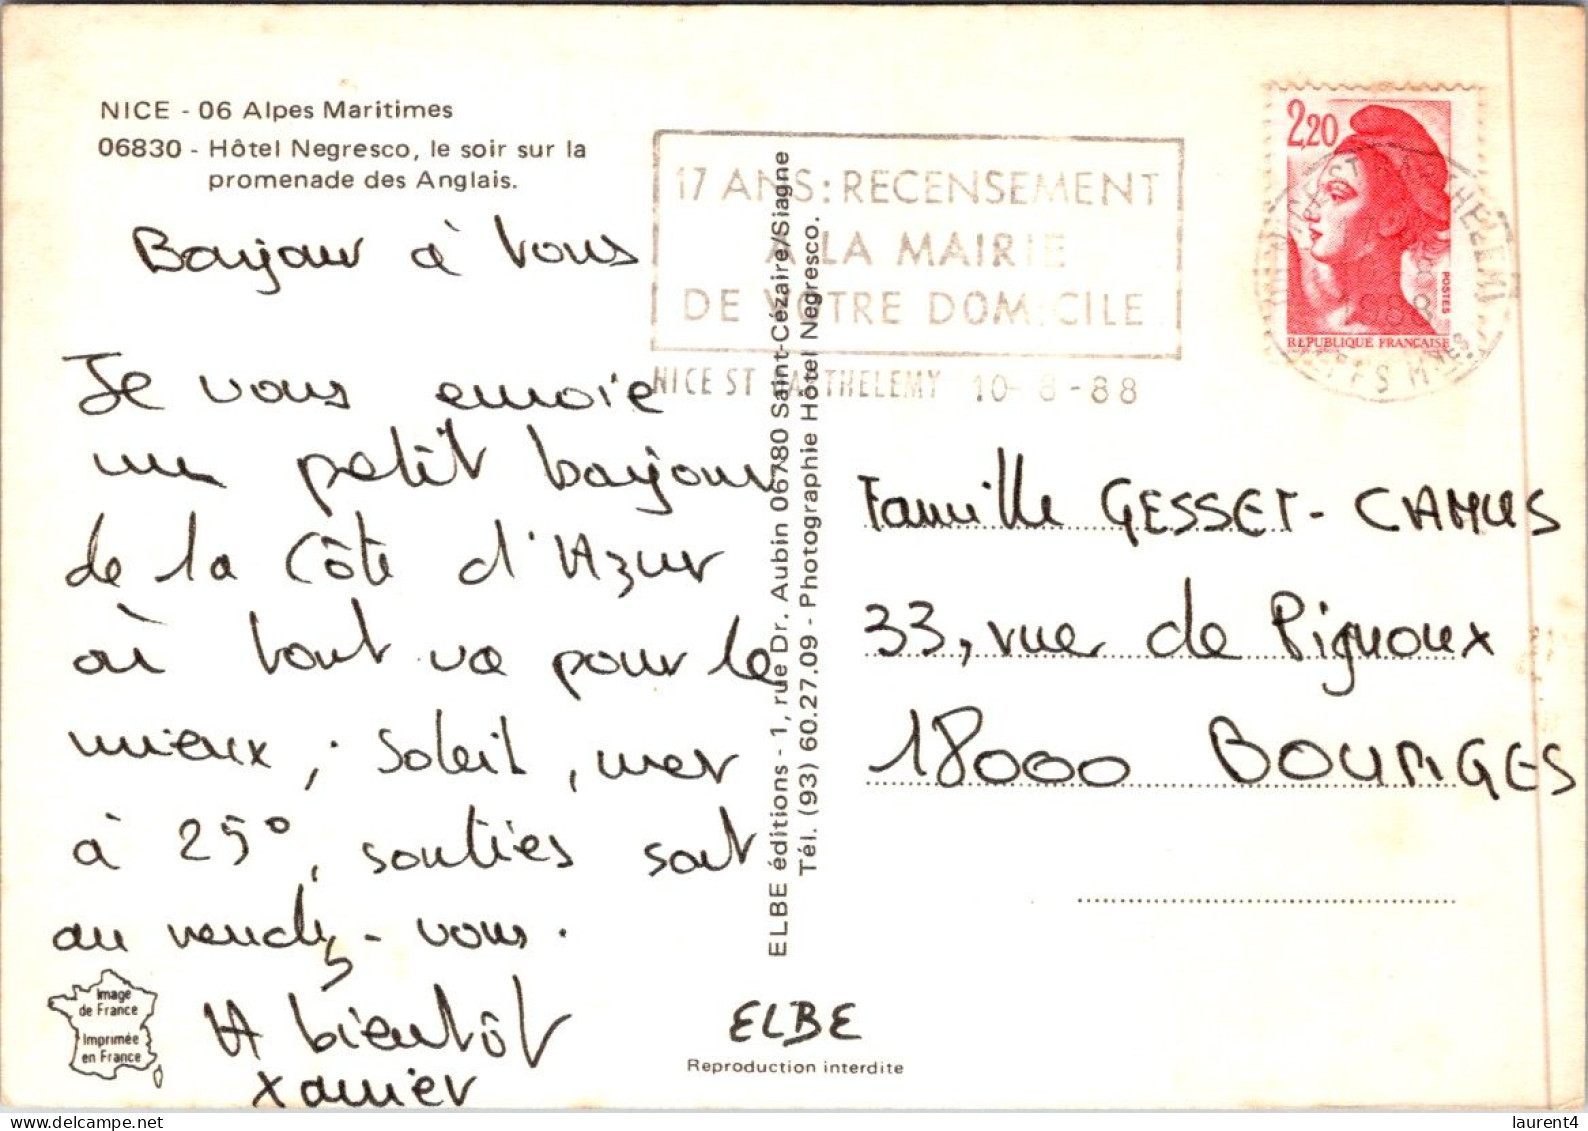 NICE - 06 Alpes Maritimes
06830 - Hôtel Negresco, le soir sur la
promenade des Anglais.
Bonjour à vous
Je vous envoie
un petit bonjour
de la Côte d'Azur
où tout va pour le
mieux ; soleil, mer
à 25°, sorties sont
au rendez-vous.
A bientôt
Xavier
Image
de France
Imprimée
en France
ELBE éditions - 1, rue Dr. Aubin 06780 Saint-Cézaire/Siagne
Tél. (93) 60.27.09 - Photographie Hôtel Negresco.
ELBE
Reproduction interdite
17 ANS : RECENSEMENT
A LA MAIRIE
DE VOTRE DOMICILE
NICE ST BARTHELEMY 10-8-88
2,20
POSTES
REPUBLIQUE FRANÇAISE
1988
Famille GESSET-CAMUS
33, rue de Pignoux
18000 BOURGES
laurent4